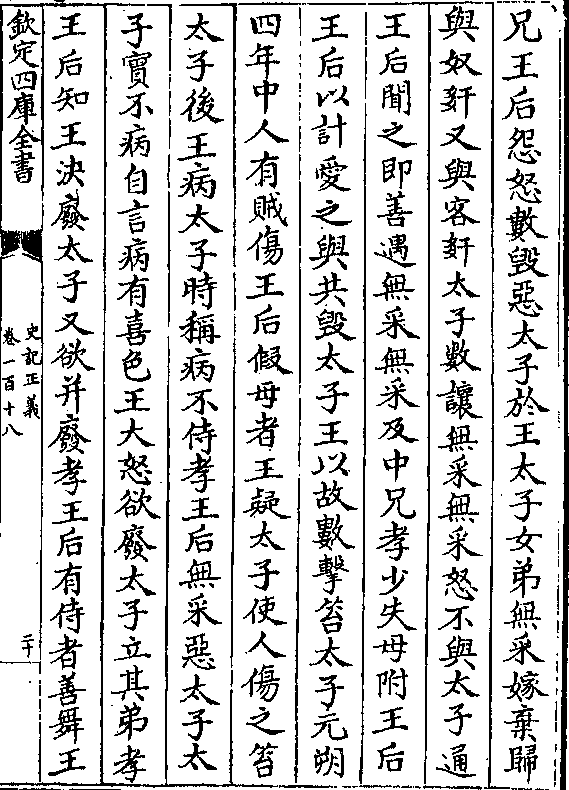 兄王后怨怒數毁惡太子於王太子女弟無采嫁棄歸
與奴姧又與客姧太子數讓無采無采怒不與太子通
王后聞之即善遇無采無采及中兄孝少失母附王后
王后以計愛之與共毁太子王以故數擊笞太子元朔
四年中人有賊傷王后假母者王疑太子使人傷之笞
太子後王病太子時稱病不侍孝王后無采惡太子太
子實不病自言病有喜色王大怒欲廢太子立其弟孝
王后知王決廢太子又欲并廢孝王后有侍者善舞王
欽定四庫全書
史記正義
卷一百十八
二十